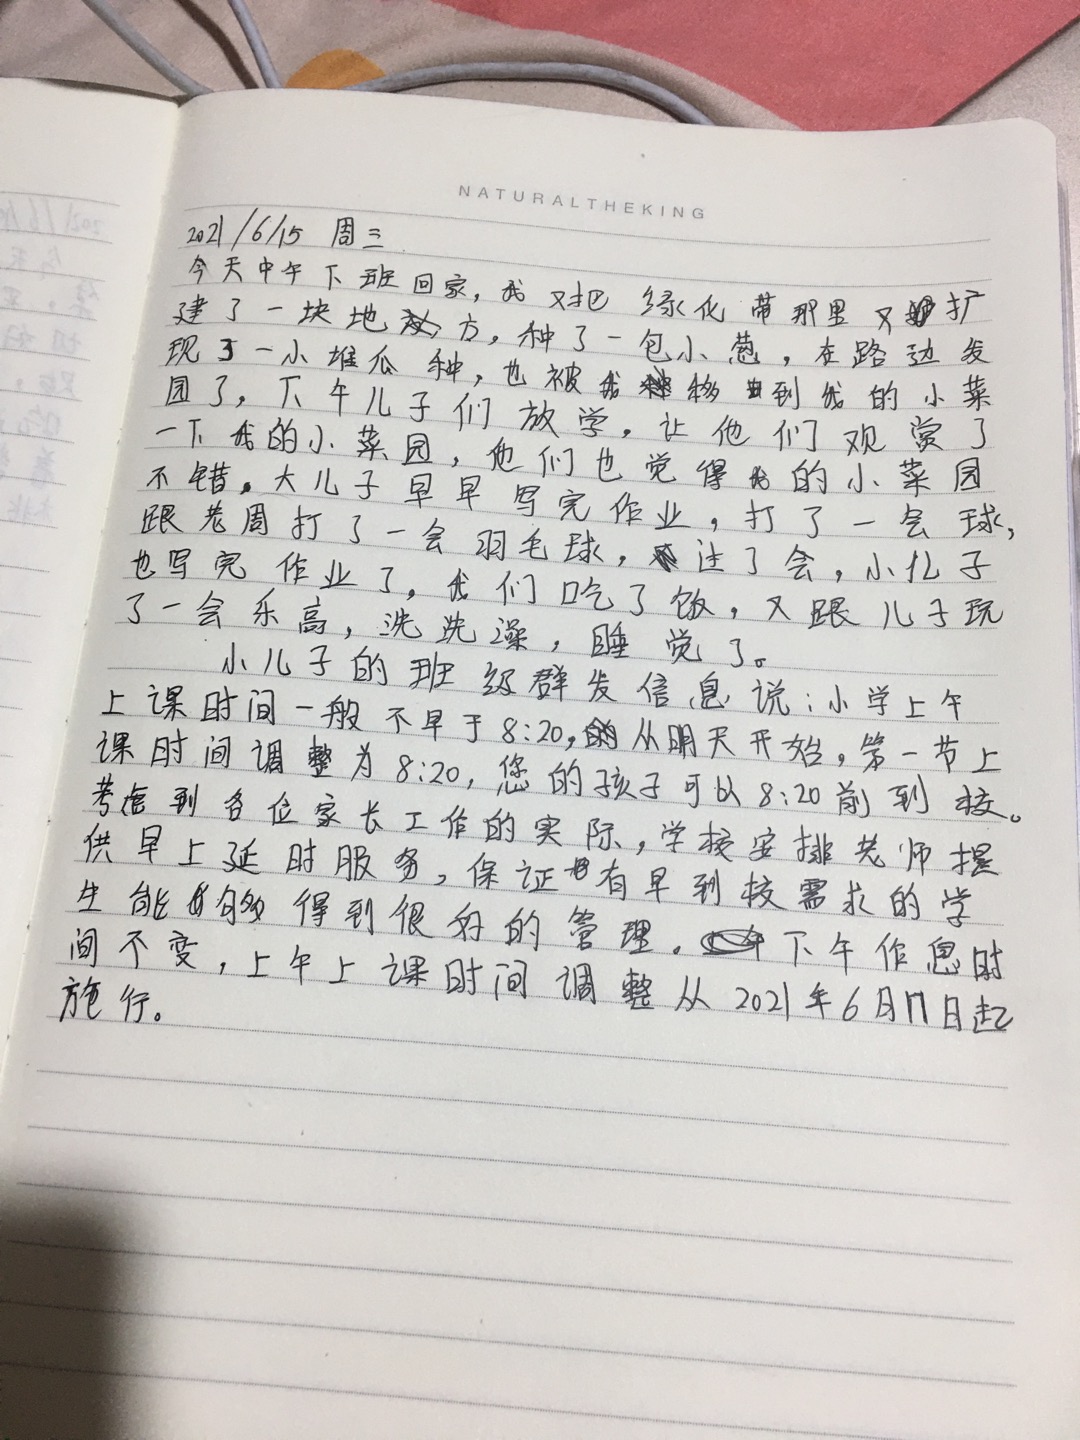 NATURALTHEKING
2021/6/15 周三
今天中午下班回家，我又把绿化带那里又扩
建了一块地方，种了一包小葱，在路边发
现了一小堆瓜种，也被我移到我的小菜
园了，下午儿子们放学，让他们观赏了
一下我的小菜园，他们也觉得我的小菜园
不错。大儿子早早写完作业，打了一会球，
跟老周打了一会羽毛球，注了会，小儿子
也写完作业了，我们吃了饭，又跟儿子玩
了一会乐高，洗洗澡，睡觉了。
小儿子的班级群发信息说：小学上午
上课时间一般不早于8:20，从明天开始，第一节上
课时间调整为8:20，您的孩子可以8:20前到校。
考虑到各位家长工作的实际，学校安排老师提
供早上延时服务，保证有早到校需求的学
生能够得到很好的管理。下午作息时
间不变，上午上课时间调整从2021年6月17日起
施行。